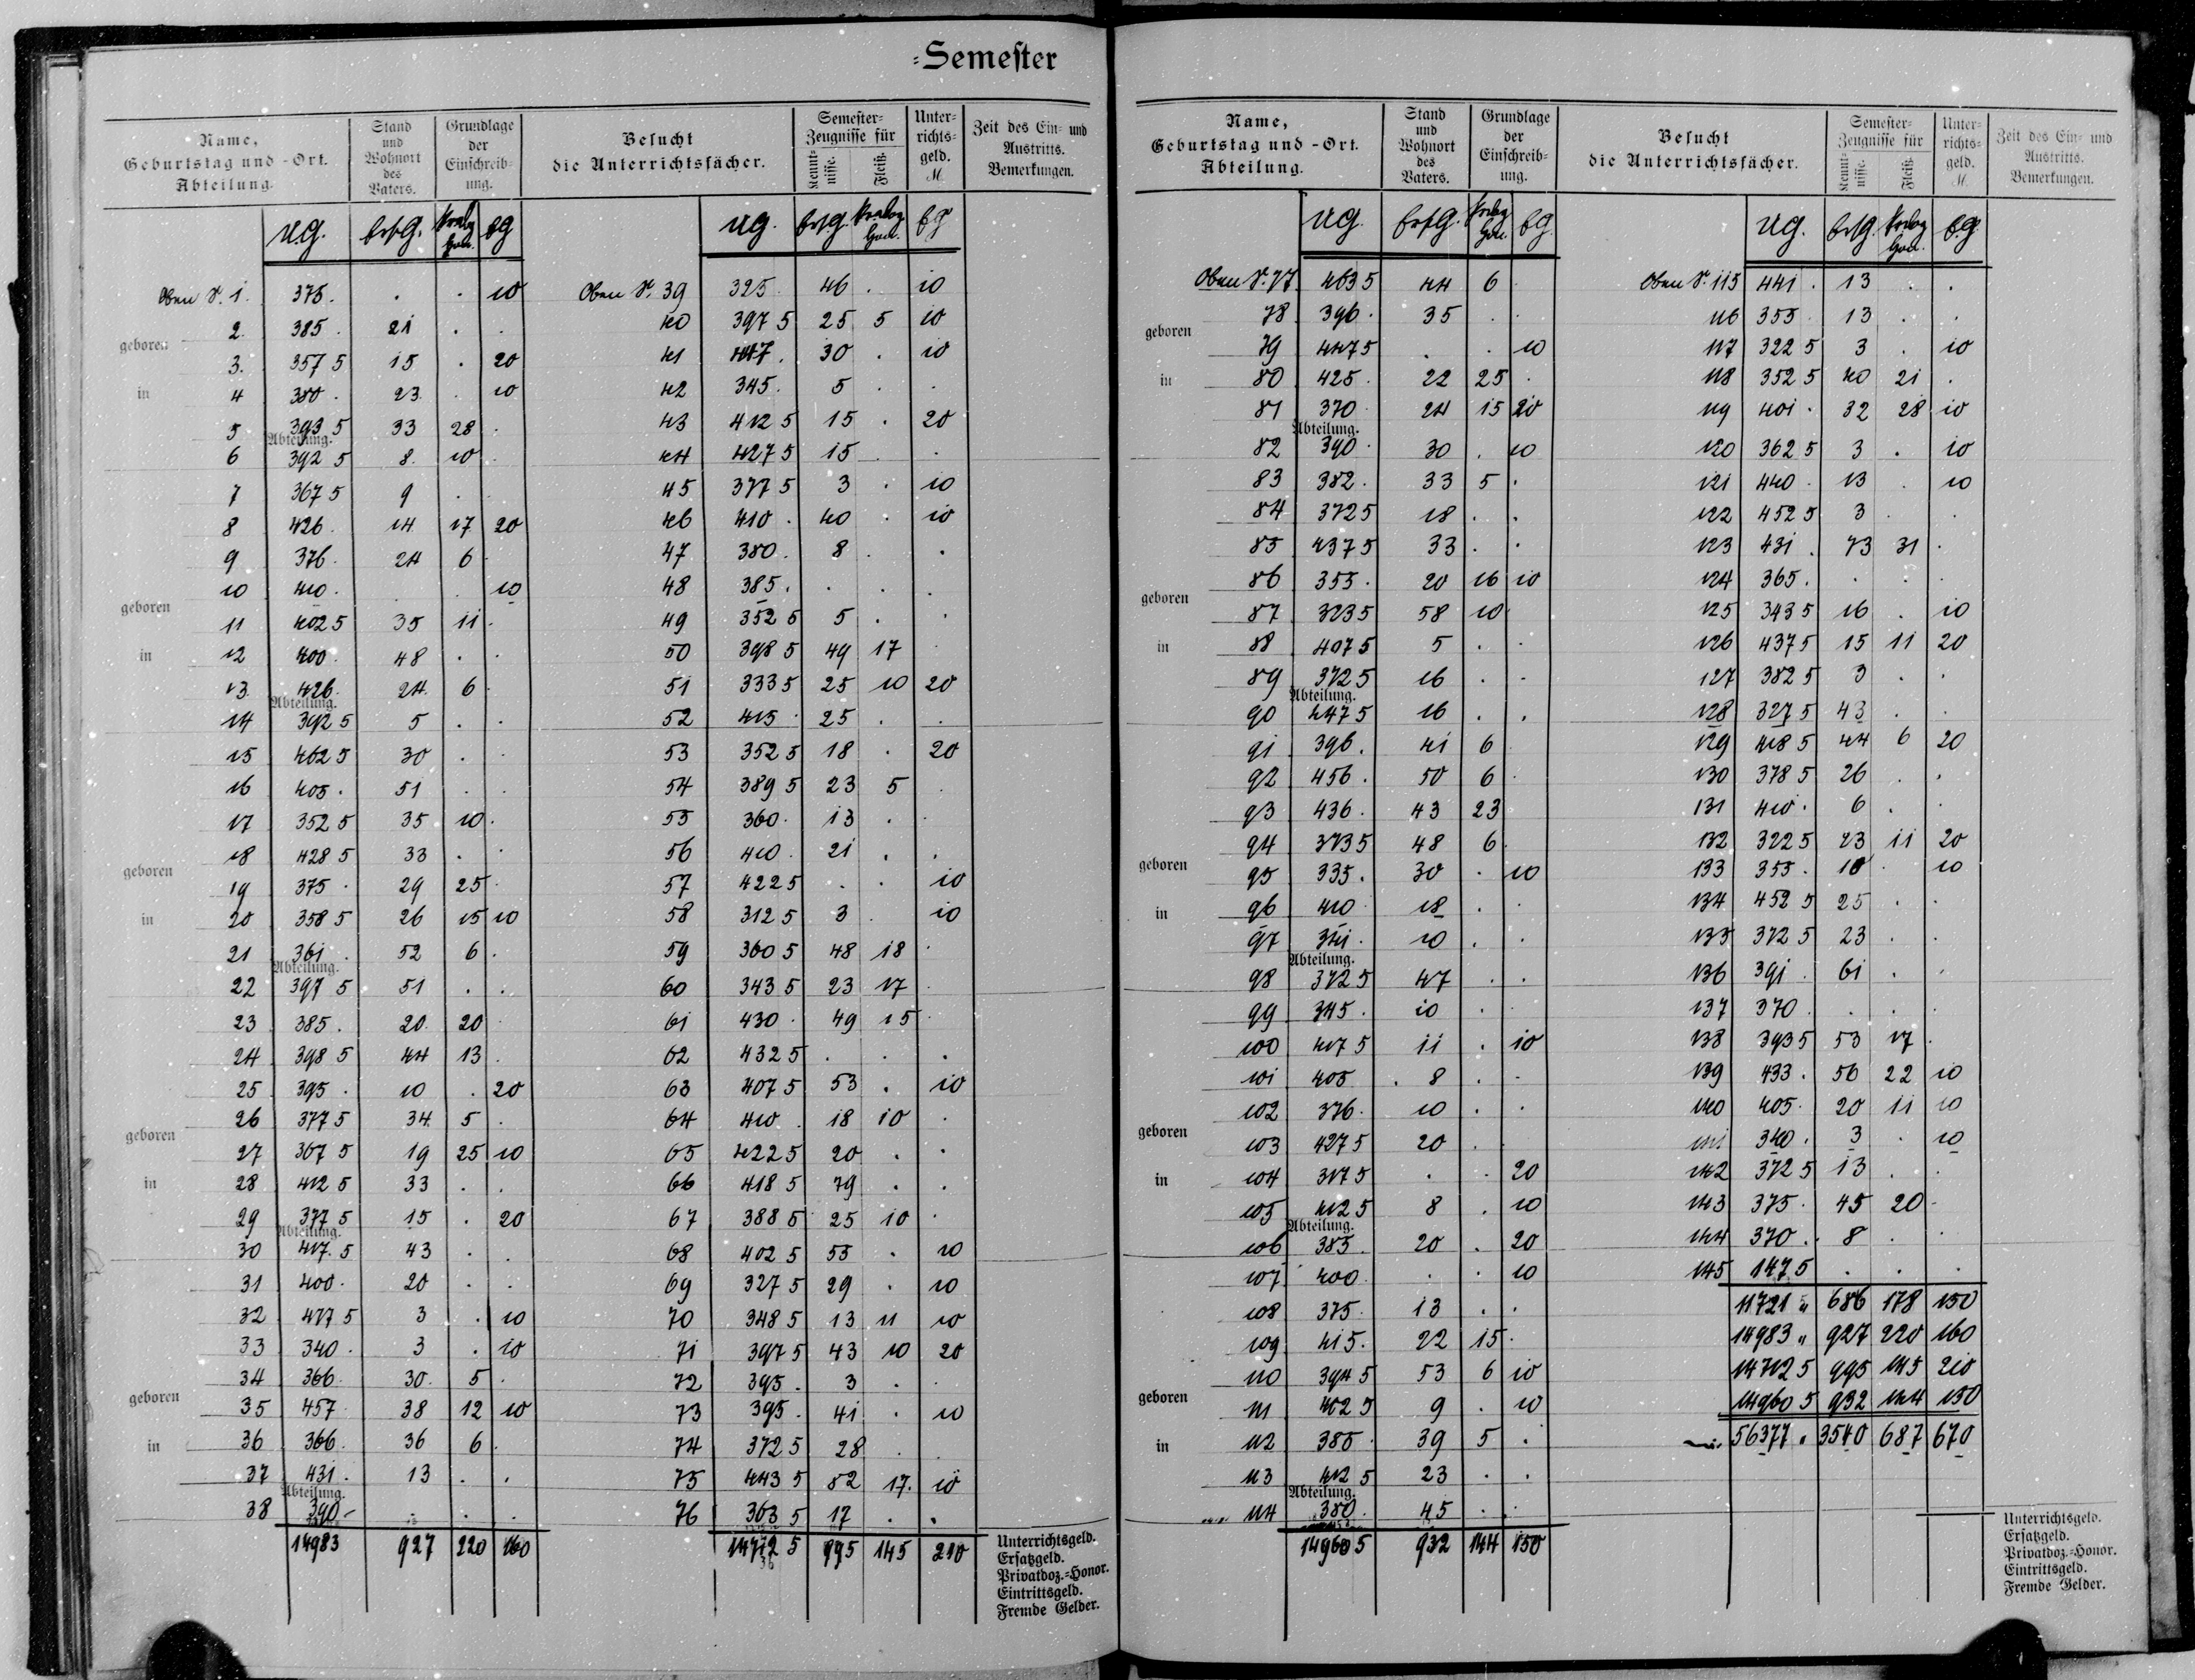 =Semester
Name, Geburtstag und -Ort. Abteilung.
Stand und Wohnort des Vaters.
Grundlage der Einschreibung.
Besucht die Unterrichtsfächer.
Semester-Zeugnisse für
Kenntnisse.
Fleiß.
Unterrichtsgeld. M.
Zeit des Ein- und Austritts. Bemerkungen.
U.G. ErsG. EG
1. 375. . . 10
2. 385. 21 . .
3. 357 5 15 . 20
4 380. 23. . 10
5 393 5 33 28 .
6 392 5 8. 10 .
7 367 5 9 . .
8 426. 14 17 20
9 376. 24 6 .
10 410. . . 10
11 402 5 35 11 .
12 400. 48 . .
13. 426. 24 6 .
14 392 5 5 . .
15 462 5 30 . .
16 405. 51 . .
17 352 5 35 10 .
18 428 5 33 . .
19 375. 29 25 .
20 358 5 26 15 10
21 361. 52 6 .
22 397 5 51 . .
23 385. 20. 20
24 398 5 44 13 .
25 395. 10 . 20
26 377 5 34 5 .
27 367 5 19 25 10
28 412 5 33 . .
29 377 5 15 . 20
30 417. 5 43 . .
31 400. 20 . .
32 417 5 3 . 10
33 340. 3 . 10
34 366. 30. 5 .
35 457 38 12 10
36 366. 36 6 .
37 431. 13 . .
38 390 - . . .
14983 927 220 160
geboren
in
Abteilung.
geboren
in
Abteilung.
geboren
in
Abteilung.
geboren
in
Abteilung.
geboren
in
Abteilung.
UG. ErsG. EG
39 325 46 . 10
40 397 5 25 5 10
41 447. 30 . 10
42 345. 5 . .
43 412 5 15 . 20
44 427 5 15 . .
45 377 5 3 . 10
46 410. 40 . 10
47 380. 8 . .
48 385. . . .
49 352 5 5 . .
50 398 5 49 17
51 333 5 25 10 20
52 415. 25 . .
53 352 5 18 . 20
54 389 5 23 5 .
55 360. 13 . .
56 410. 21 . .
57 422 5 . . 10
58 312 5 3 . 10
59 360 5 48 18 .
60 343 5 23 17 .
61 430. 49 15 .
62 432 5 . . .
63 407 5 53 . 10
64 410. 18 10 .
65 422 5 20 . .
66 418 5 79 . .
67 388 5 25 10 .
68 402 5 55 . 10
69 327 5 29 . 10
70 348 5 13 11 10
71 397 5 43 10 20
72 395. 3 . .
73 395. 41 . 10
74 372 5 28 . .
75 443 5 82 17. 10
76 363 5 17 . .
14712 5 995 145 210
Unterrichtsgeld.
Ersatzgeld.
Privatdoz.-Honor.
Eintrittsgeld.
Fremde Gelder.
Name, Geburtstag und -Ort. Abteilung.
Stand und Wohnort des Vaters.
Grundlage der Einschreibung.
Besucht die Unterrichtsfächer.
Semester-Zeugnisse für
Kenntnisse.
Fleiß.
Unterrichtsgeld. M.
Zeit des Ein- und Austritts. Bemerkungen.
UG. ErsG. EG.
77 463 5 44 6 .
78. 396. 35 . .
79 447 5 . . 10
80 425. 22 25 .
81 370. 24 15 20
82 390. 30 . 10
83 382. 33 5 .
84 372 5 18 . .
85 437 5 33 . .
86 355. 20 16 10
87 323 5 58 10
88 407 5 5 . .
89 372 5 16 . .
90 447 5 16 . .
91 396. 41 6
92 456. 50 6 .
93 436. 43 23
94 373 5 48 6 .
95 335. 30 . 10
96 410 18 . .
97 341. 10 . .
98 372 5 47 . .
99 345. 10 . .
100 417 5 11 . 10
101 405 8 . .
102 376. 10 . .
103 427 5 20 .
104 317 5 . . 20
105 412 5 8 . 10
106 385. 20 . 20
107 400. . . 10
108 375. 13 . .
109 415. 22 15 .
110 394 5 53 6 10
111 402 5 9 . 10
112 385. 39 5 .
113 412 5 23 . .
114 380. 45 . .
14960 5 932 144 150
geboren
in
Abteilung.
geboren
in
Abteilung.
geboren
in
Abteilung.
geboren
in
Abteilung.
geboren
in
Abteilung.
UG. ErsG. EG.
115 441. 13 . .
116 355. 13 . .
117 322 5 3 . 10
118 352 5 40 21 .
119 401. 32 28 10
120 362 5 3 . 10
121 440. 13 . 10
122 452 5 3 .
123 431. 73 31 .
124 365. . . .
125 343 5 16 . 10
126 437 5 15 11 20
127 382 5 3 . .
128 327 5 43 . .
129 418 5 44 6 20
130 378 5 26 . .
131 410. 6 . .
132 322 5 23 11 20
133 355. 10 . 10
134 452 5 25 . .
135 372 5 23 . .
136 391. 61 . .
137 370. . . .
138 393 5 53 17 .
139 433. 56 22 10
140 405. 20 11 10
141 340. 3 . 10
142 372 5 13 . .
143 375. 45 20 .
144 370. 8 . .
145 147 5 . . .
11721 " 686 178 150
14983 " 927 220 160
14712 5 995 145 210
14960 5 932 144 150
56377 " 3540 687 670
Unterrichtsgeld.
Ersatzgeld.
Privatdoz.-Honor.
Eintrittsgeld.
Fremde Gelder.